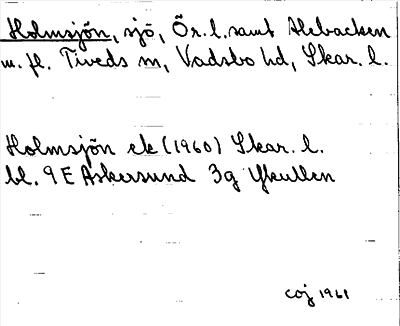 Holmsjön, sjö, Ör. l. samt Alebacken
m. fl. Tiveds sn, Vadsbo hd, Skar. l.
Holmsjön ek (1960) Skar. l.
bl. 9E Askersund 3g Ykullen
coj 1961